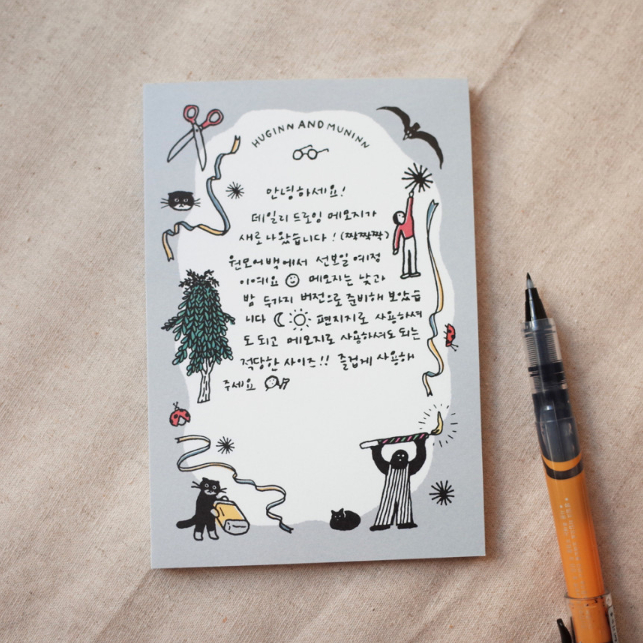 HUGINN AND MUNINN
안녕하세요!
데일리 드로잉 메모지가
새로 나왔습니다! (짝짝짝)
원모어백에서 선보일 예정
이예요 메모지는 낮과
밤 두가지 버전으로 준비해 보았습
니다 편지지로 사용하셔
도 되고 메모지로 사용하셔도 되는
적당한 사이즈!! 즐겁게 사용해
주세요